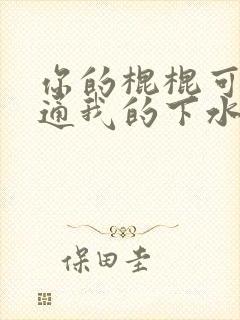 你的棍棍可
通我的下水
保田圭